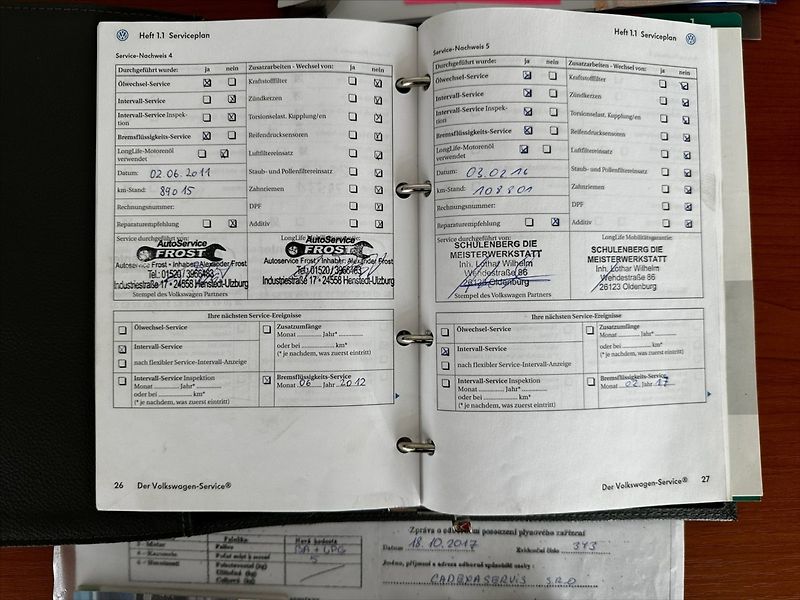 Heft 1.1 Serviceplan
Service-Nachweis 4
Durchgeführt wurde: ja nein
Zusatzarbeiten - Wechsel von: ja nein
Ölwechsel-Service
Kraftstofffilter
Intervall-Service
Zündkerzen
Intervall-Service Inspek-
tion
Torsionselast. Kupplung/en
Bremsflüssigkeits-Service
Reifendrucksensoren
LongLife-Motorenöl
verwendet
Luftfiltereinsatz
Datum: 02.06.2011
Staub- und Pollenfiltereinsatz
km-Stand: 89015
Zahnriemen
Rechnungsnummer:
DPF
Reparaturempfehlung
Additiv
Service durchgeführt von:
LongLife Mobilitätsgarantie:
AutoService
FROST
Autoservice Frost - Inhaber: Alexander Frost
Tel.: 01520 / 3966463
Industriestraße 17 • 24558 Henstedt-Ulzburg
AutoService
FROST
Autoservice Frost - Inhaber: Alexander Frost
Tel.: 01520 / 3966463
Industriestraße 17 • 24558 Henstedt-Ulzburg
Stempel des Volkswagen Partners
Ihre nächsten Service-Ereignisse
Ölwechsel-Service
Zusatzumfänge
Monat Jahr*
Intervall-Service
oder bei km*
(* je nachdem, was zuerst eintritt)
nach flexibler Service-Intervall-Anzeige
Intervall-Service Inspektion
Monat Jahr*
oder bei km*
(* je nachdem, was zuerst eintritt)
Bremsflüssigkeits-Service
Monat 06 Jahr 2012
26 Der Volkswagen-Service®
Heft 1.1 Serviceplan
Service-Nachweis 5
Durchgeführt wurde: ja nein
Zusatzarbeiten - Wechsel von: ja nein
Ölwechsel-Service
Kraftstofffilter
Intervall-Service
Zündkerzen
Intervall-Service Inspek-
tion
Torsionselast. Kupplung/en
Bremsflüssigkeits-Service
Reifendrucksensoren
LongLife-Motorenöl
verwendet
Luftfiltereinsatz
Datum: 03.02.16
Staub- und Pollenfiltereinsatz
km-Stand: 108801
Zahnriemen
Rechnungsnummer:
DPF
Reparaturempfehlung
Additiv
Service durchgeführt von:
LongLife Mobilitätsgarantie:
SCHULENBERG DIE
MEISTERWERKSTATT
Inh. Lothar Wilhelm
Wehdestraße 86
26123 Oldenburg
SCHULENBERG DIE
MEISTERWERKSTATT
Inh. Lothar Wilhelm
Wehdestraße 86
26123 Oldenburg
Stempel des Volkswagen Partners
Ihre nächsten Service-Ereignisse
Ölwechsel-Service
Zusatzumfänge
Monat Jahr*
Intervall-Service
oder bei km*
(* je nachdem, was zuerst eintritt)
nach flexibler Service-Intervall-Anzeige
Intervall-Service Inspektion
Monat Jahr*
oder bei km*
(* je nachdem, was zuerst eintritt)
Bremsflüssigkeits-Service
Monat 02 Jahr 17
Der Volkswagen-Service® 27
Zpráva o odborném posouzení plynového zařízení
Datum 18.10.2017 Evidenční číslo 373
Jméno, příjmení a adresa odborně způsobilé osoby:
Palivo BA + LPG
Počet míst k sezení 5